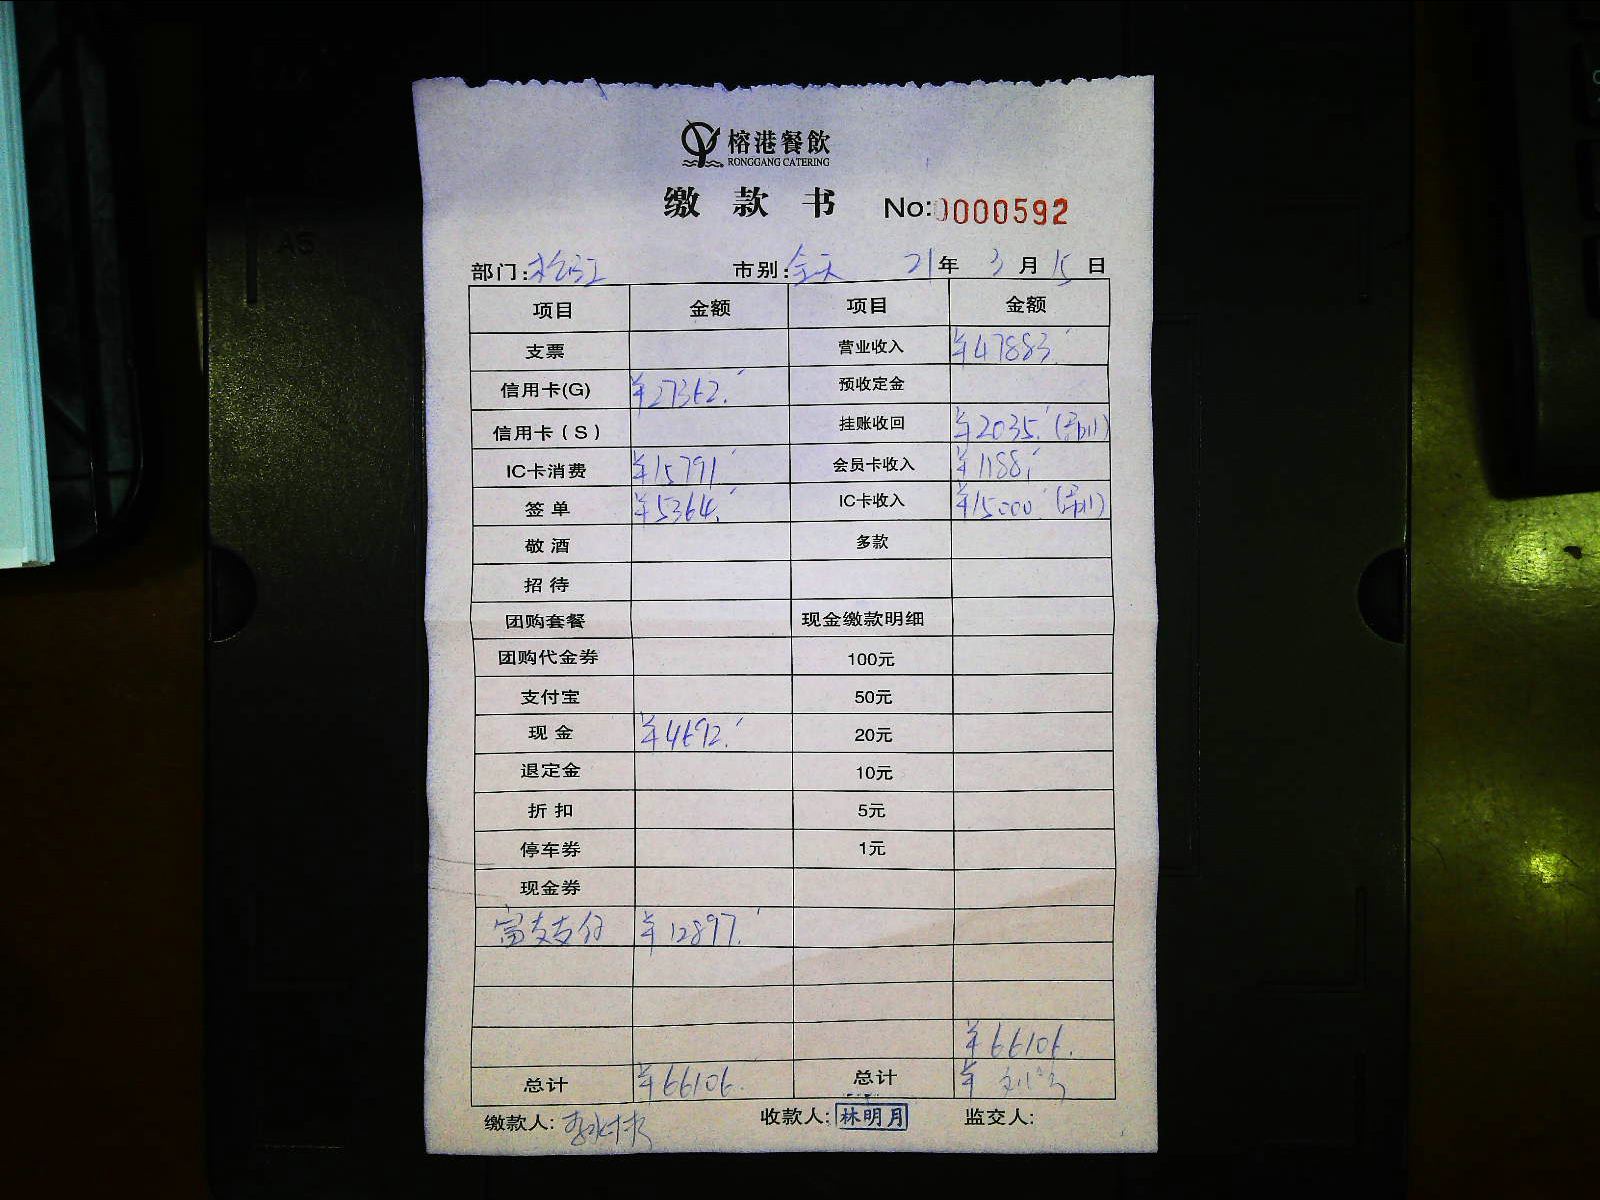 榕港餐飲
RONGGANG CATERING
缴款书 No:0000592
部门:松江 市别:全天 21年3月15日
项目 金额 项目 金额
支票 营业收入 ¥47883.
信用卡(G) ¥27362. 预收定金
信用卡(S) 挂账收回 ¥2035.
IC卡消费 ¥15791 会员卡收入 ¥1188.
签单 ¥5364. IC卡收入 ¥15000
敬酒 多款
招待
团购套餐 现金缴款明细
团购代金券 100元
支付宝 50元
现金 ¥4692. 20元
退定金 10元
折扣 5元
停车券 1元
现金券
富友支付 ¥12897.
¥66106.
总计 ¥66106. 总计 ¥
缴款人: 收款人:林明月 监交人: